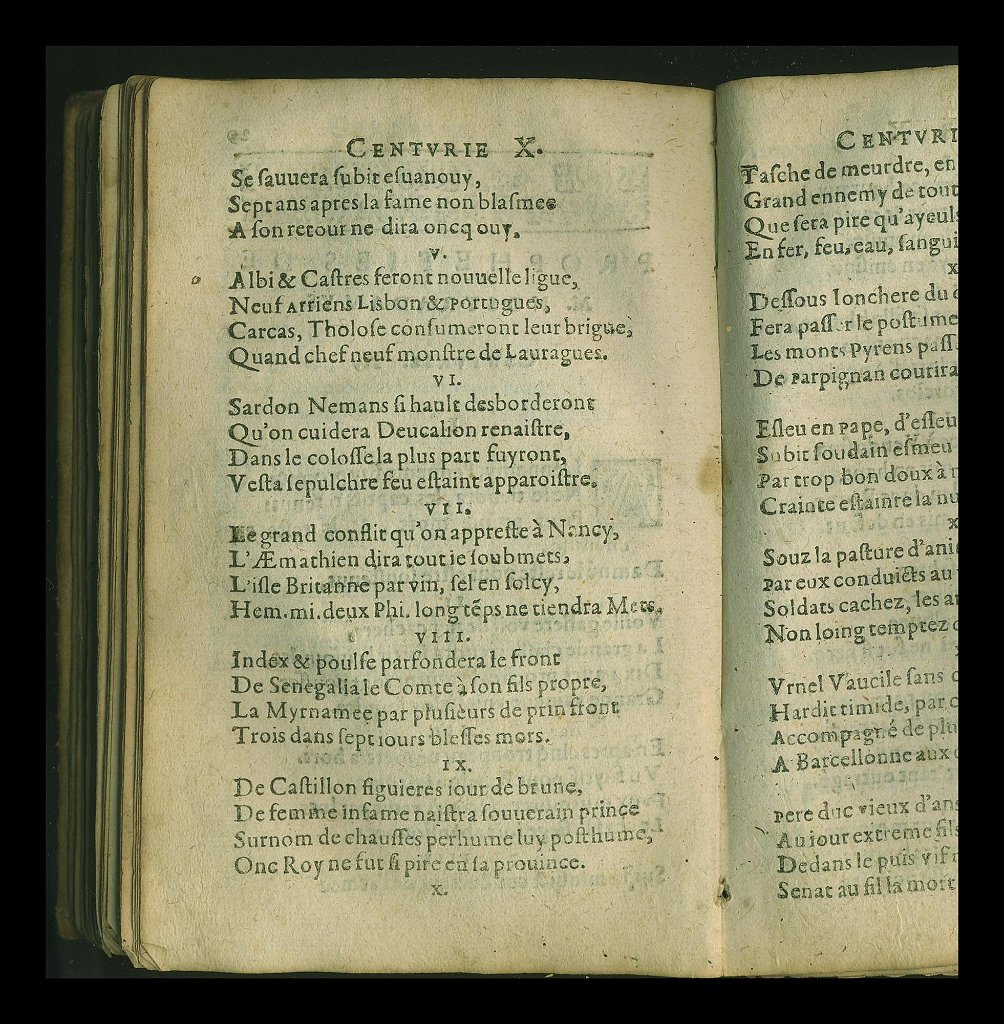 CENTVRIE X.
Se ſauuera ſubit eſuanouy,
Sept ans apres la fame non blaſmee
A ſon retour ne dira oncq ouy.
V.
Albi & Caſtres feront nouuelle ligue,
Neuf Arriens Lisbon & Portugues,
Carcas, Tholoſe conſumeront leur brigue,
Quand chef neuf monſtre de Lauragues.
VI.
Sardon Nemans ſi hault desborderont
Qu'on cuidera Deucalion renaiſtre,
Dans le coloſſe la plus part fuyront,
Veſta ſepulchre feu eſtaint apparoiſtre.
VII.
Le grand conflit qu'on appreſte à Nancy,
L'Æmathien dira tout ie ſoubmets,
L'iſle Britanne par vin, ſel en ſolcy,
Hem. mi. deux Phi. long tẽps ne tiendra Mets.
VIII.
Index & poulſe parfondera le front
De Senegalia le Comte à ſon fils propre,
La Myrnamee par pluſieurs de prin front
Trois dans ſept iours bleſſes mors.
IX.
De Caſtillon figuieres iour de brune,
De femme infame naiſtra ſouuerain prince
Surnom de chauſſes perhume luy poſthume,
Onc Roy ne fut ſi pire en ſa prouince.
X.
CENTVRI
Taſche de meurdre, en
Grand ennemy de tout
Que ſera pire qu'ayeuls
En fer, feu, eau, ſangui
Deſſous Ionchere du
Fera paſſer le poſtume
Les monts Pyrens paſſ
De Parpignan courira
Eſleu en Pape, d'eſleu
Subit ſoudain eſmeu
Par trop bon doux à
Crainte eſtainte la nu
Souz la paſture d'ani
Par eux conduicts au
Soldats cachez, les ar
Non loing temptez
Vrnel Vaucile ſans
Hardit timide, par
Accompagné de plu
A Barcellonne aux
Pere duc vieux d'ans
Au iour extreme fils
Dedans le puis vif
Senat au fil la mort